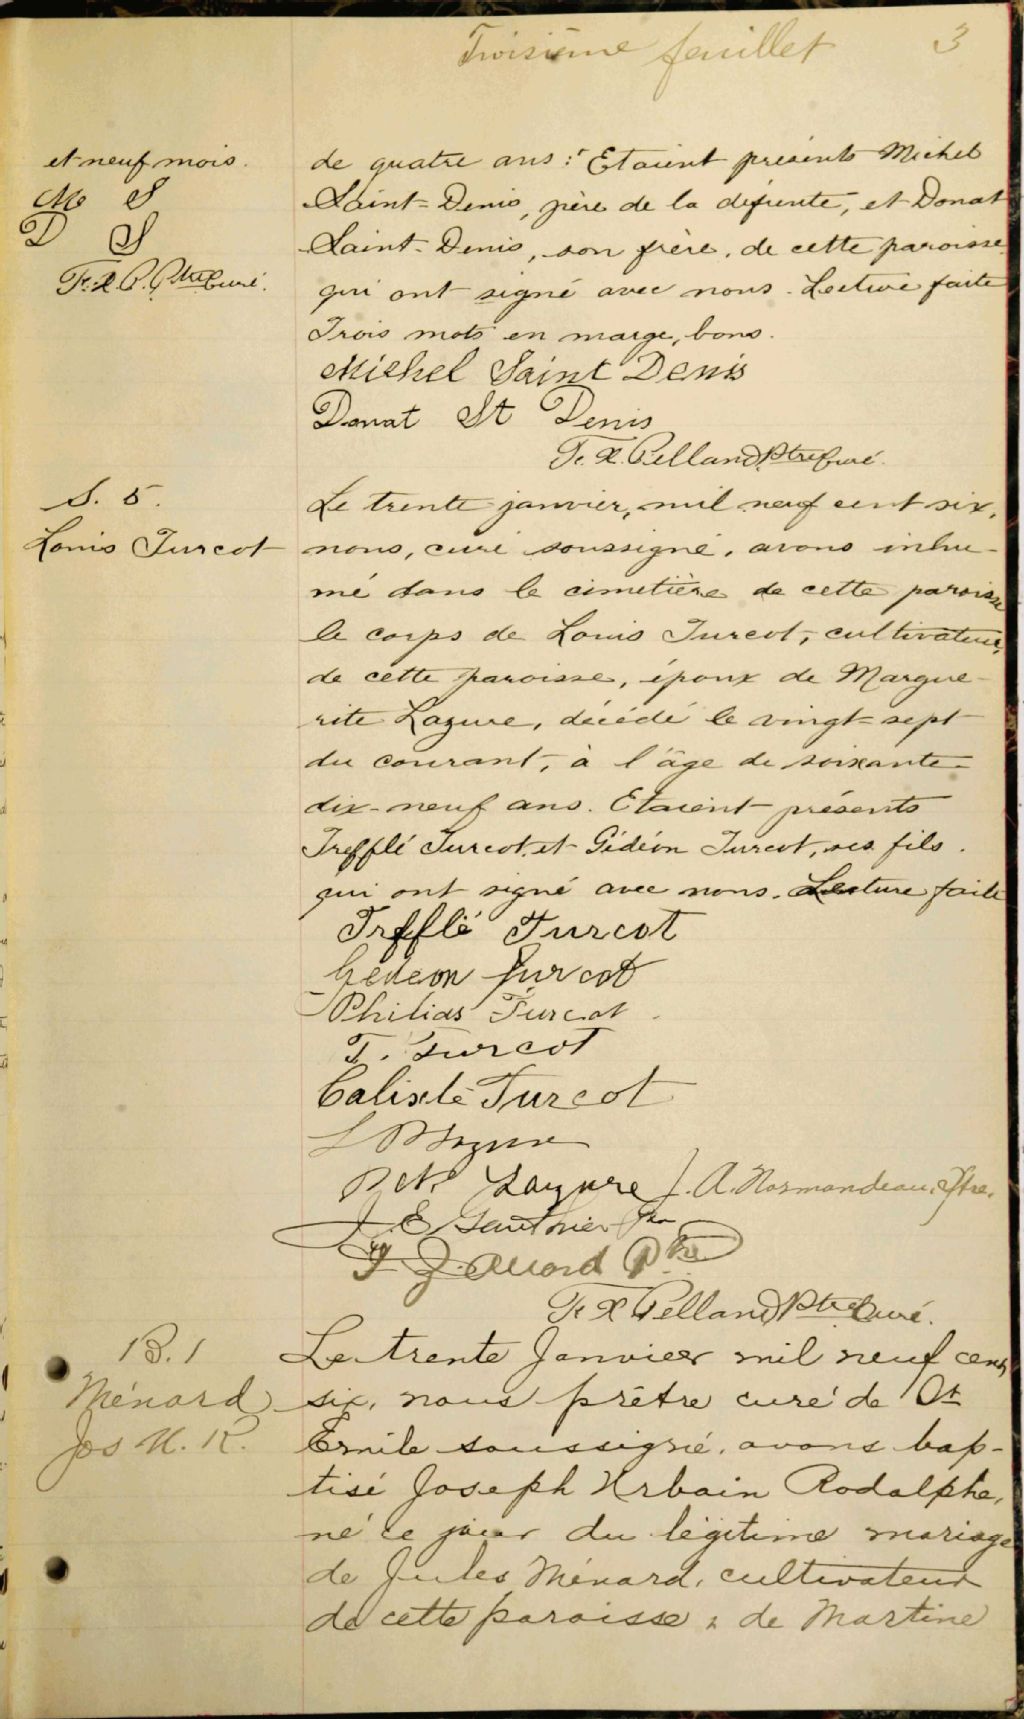 Troisième feuillet 3
et neuf mois.
M S
D S
F. X. P. Ptre Curé.
de quatre ans: Etaient présents Michel
Saint-Denis, père de la défunte, et Donat
Saint-Denis, son frère, de cette paroisse
qui ont signé avec nous. Lecture faite
Trois mots en marge, bons.
Michel Saint Denis
Donat St Denis
F. X. Pelland Ptre Curé.
S. 5.
Louis Turcot
Le trente janvier, mil neuf cent six,
nous, curé soussigné, avons inhu-
mé dans le cimetière de cette paroisse
le corps de Louis Turcot, cultivateur,
de cette paroisse, époux de Margue-
rite Lazure, décédé le vingt-sept
du courant, à l'âge de soixante-
dix-neuf ans. Etaient présents
Trefflé Turcot et Gédéon Turcot, ses fils.
qui ont signé avec nous. Lecture faite
Trefflé Turcot
Gedeon Turcot
Philias Turcot
T. Turcot
Calixte Turcot
Lazure J. A. Normandeau, Ptre.
J. E. Gauthier Ptre
F. X. Pelland Ptre Curé.
B. 1
Ménard
Jos U. R.
Le trente Janvier mil neuf cent
six, nous prêtre curé de St
Emile soussigné, avons bap-
tisé Joseph Urbain Rodolphe,
né ce jour du légitime mariage
de Jules Ménard, cultivateur
de cette paroisse & de Martine